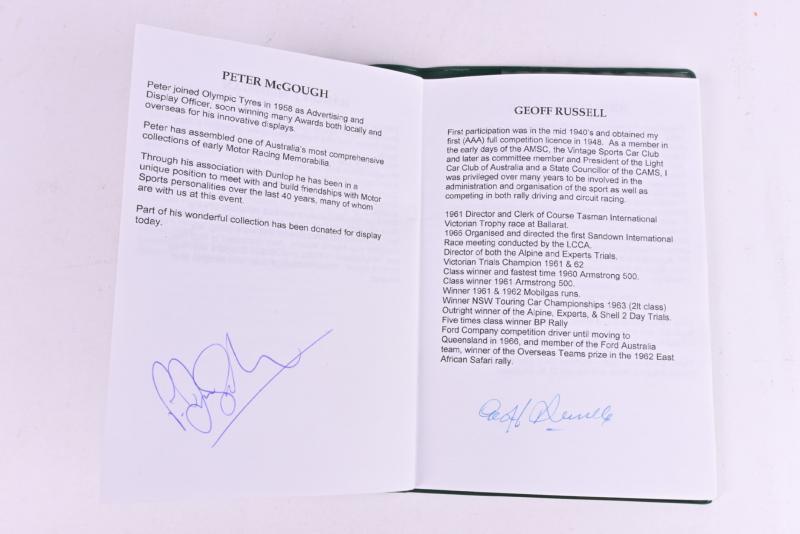 PETER McGOUGH
Peter joined Olympic Tyres in 1958 as Advertising and
Display Officer, soon winning many Awards both locally and
overseas for his innovative displays.
Peter has assembled one of Australia's most comprehensive
collections of early Motor Racing Memorabilia.
Through his association with Dunlop he has been in a
unique position to meet with and build friendships with Motor
Sports personalities over the last 40 years, many of whom
are with us at this event.
Part of his wonderful collection has been donated for display
today.
GEOFF RUSSELL
First participation was in the mid 1940's and obtained my
first (AAA) full competition licence in 1948. As a member in
the early days of the AMSC, the Vintage Sports Car Club
and later as committee member and President of the Light
Car Club of Australia and a State Councillor of the CAMS, I
was privileged over many years to be involved in the
administration and organisation of the sport as well as
competing in both rally driving and circuit racing.
1961 Director and Clerk of Course Tasman International
Victorian Trophy race at Ballarat.
1965 Organised and directed the first Sandown International
Race meeting conducted by the LCCA.
Director of both the Alpine and Experts Trials.
Victorian Trials Champion 1961 & 62
Class winner and fastest time 1960 Armstrong 500.
Class winner 1961 Armstrong 500.
Winner 1961 & 1962 Mobilgas runs.
Winner NSW Touring Car Championships 1963 (2lt class)
Outright winner of the Alpine, Experts, & Shell 2 Day Trials.
Five times class winner BP Rally
Ford Company competition driver until moving to
Queensland in 1966, and member of the Ford Australia
team, winner of the Overseas Teams prize in the 1962 East
African Safari rally.
Geoff Russell